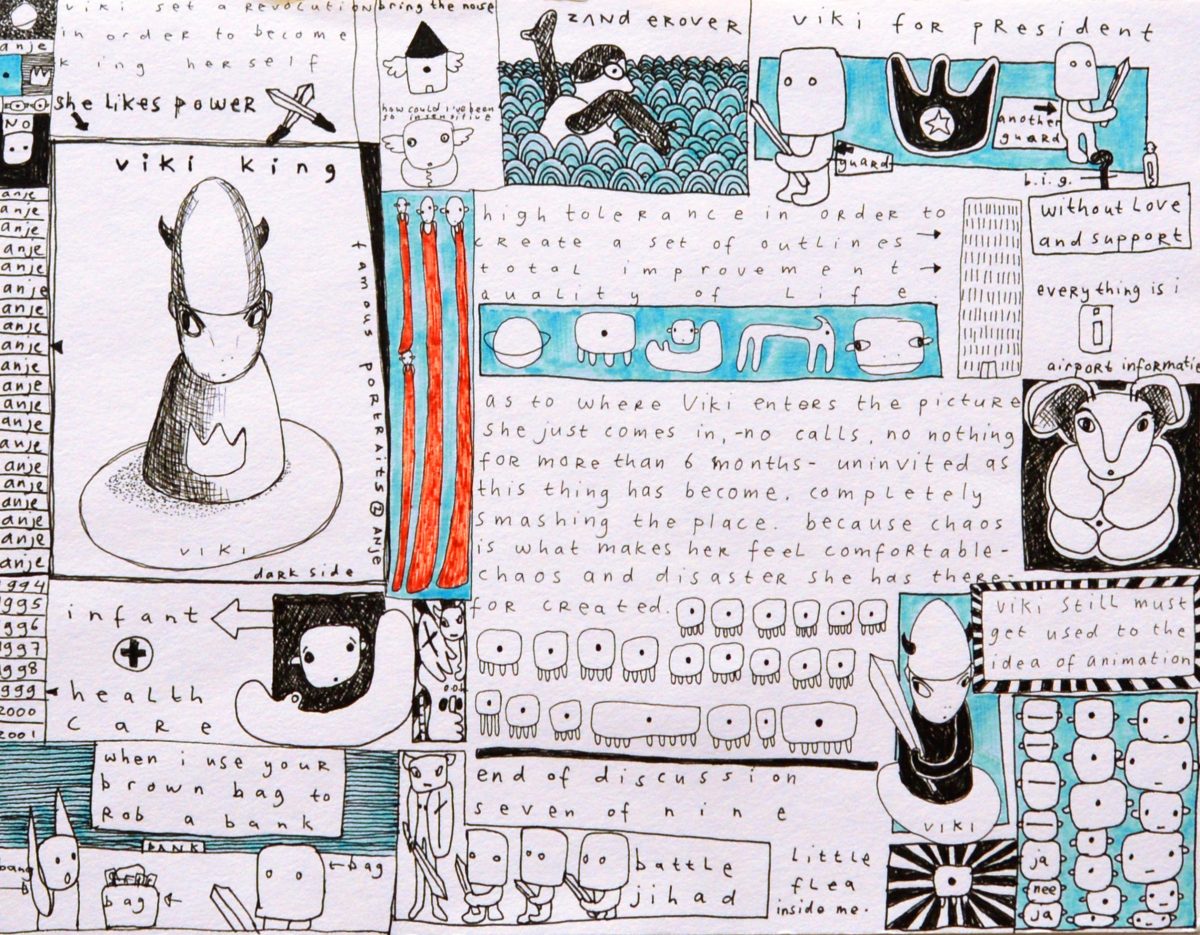 anje
NO
anje
anje
anje
anje
anje
anje
anje
anje
anje
anje
anje
anje
anje
anje
anje
anje
anje
anje
anje
anje
1994
1995
1996
1997
1998
1999
2000
2001
viki set a revolution
in order to become
king herself
she likes power
viki king
famous portraits @ ANJE
VIKI
dark side
bring the noise
how could i've been
so insensitive
ZAND EROVER
viki for president
guard
another
guard
b.i.g.
without love
and support
everything is i
i
airport informatie
high tolerance in order to
create a set of outlines
total improvement
quality of life
as to where Viki enters the picture
she just comes in, -no calls, no nothing
for more than 6 months- uninvited as
this thing has become. completely
smashing the place. because chaos
is what makes her feel comfortable-
chaos and disaster she has there-
for created.
infant
health
care
when i use your
brown bag to
Rob a bank
BANK
bag
bag
end of discussion
seven of nine
battle
jihad
little
flea
inside me.
viki still must
get used to the
idea of animation
VIKI
ja
nee
ja